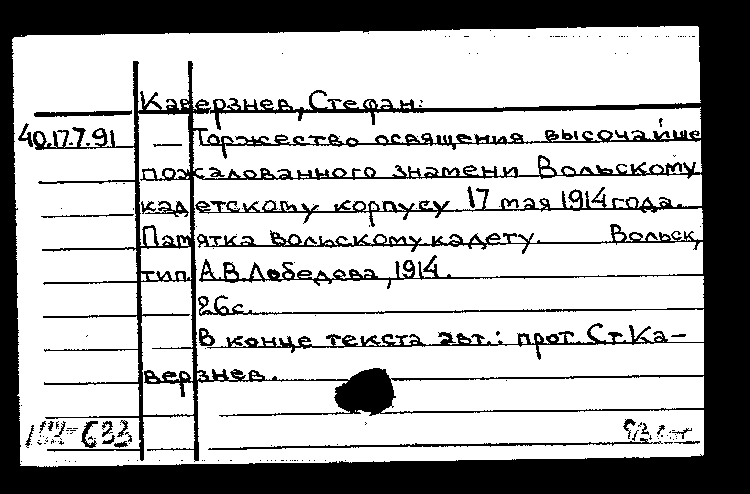 Каверзнев, Стефан.
40.17.7.91 — Торжество освящения высочайше
пожалованного знамени Вольскому
кадетскому корпусу 17 мая 1914 года.
Памятка вольскому кадету. Вольск,
тип. А.В.Лебедева, 1914.
26с.
В конце текста авт.: прот. Ст. Ка-
верзнев.
633